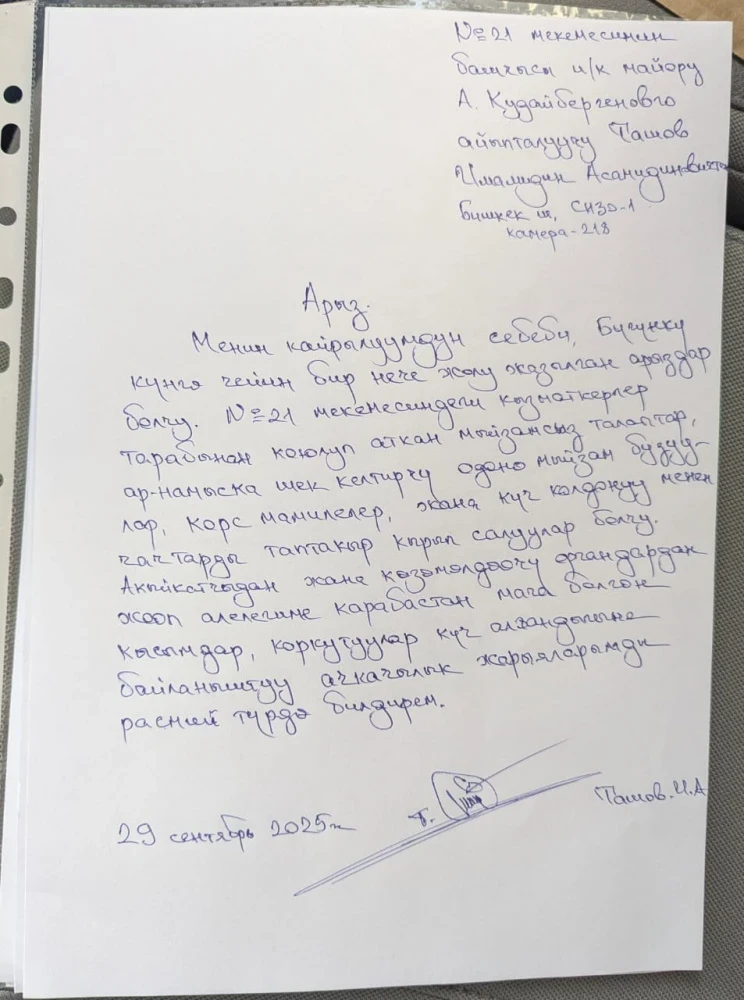 №21 мекемесинин
башчысы и/к майору
А. Кудайбергеновго
айыпталуучу Ташов
Имамидин Асанидинович
Бишкек ш, СИЗО-1
камера-218
Арыз.
Менин кайрылуумдун себеби, Бүгүнкү
күнгө чейин бир нече жолу жазылган арыздар
болчу. №21 мекемесиндеги кызматкерлер
тарабынан коюлуп аткан мыйзамсыз талаптар,
ар-намыска шек келтирчү одоно мыйзам бузуу-
лар, корс мамилелер, жана күч колдонуу менен
чачтарды таптакыр кырып салуулар болчу.
Акыйкатчыдан жана көзөмөлдөөчү органдардан
жооп алелегиме карабастан мага болгон
кысымдар, коркутуулар күч алгандыгына
байланыштуу ачкачылык жарыяларымды
расмий түрдө билдирем.
29 сентябрь 2025г
Т.
Ташов.И.А